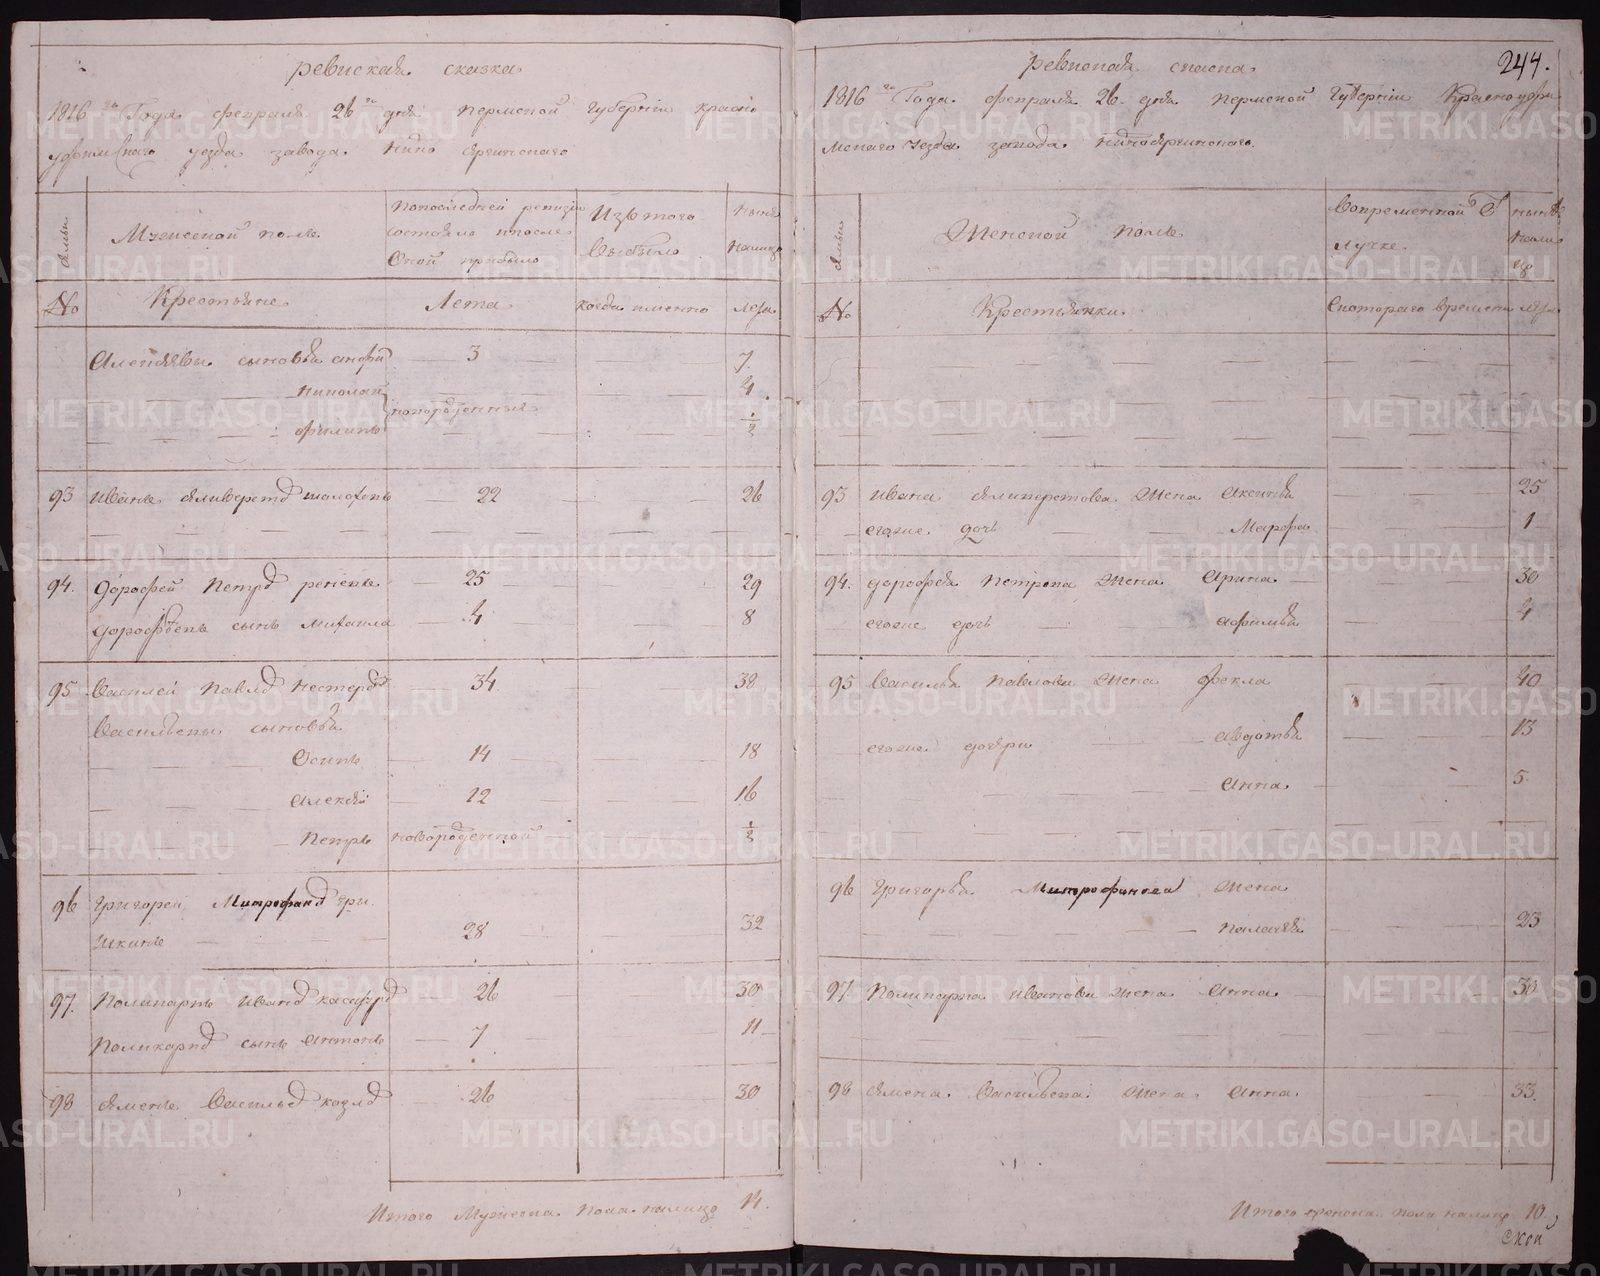 ревиская сказка
1816 го Года февраля 26 го дня пермской губернии красно
уфимскаго уезда завода нижно
Мужеской полъ
Попоследней ревизіи состояло ипосле оной прибыло
Изътого выбыло
ныне налицо
№
Крестьяне
Лета
когда имянно
лета
сыновья 3 7
Николай новорожденныя 4
филипъ 1/2
93 иванъ 22 26
94. дорофей Петро 25 29
дорофеевъ сынъ михаила 4 8
95 василей павло нестеро 34 38
васильевы сыновья
Осипъ 14 18
алексей 12 16
Петръ новорожденной 1/2
96 григорей Митрофано гри
шкинъ 28 32
97. Поликарпъ ивано 26 30
Поликарпо сынъ антонъ 7 11
98 васильево козло 26 30
Итого Мужеска пола налицо 14.
244.
ревиская сказка
1816 го Года февраля 26 дня пермской Губерніи Красноуфи
мскаго уезда завода
Женской полъ
Вовременной отлучке
ныне налицо
№
Крестьянки
Скотораго времени
лета
93 ивана жена аксинья 25
егоже дочь Марфа 1
94. дорофея петрова жена арина 30
егоже дочь афимья 4
95 василья павлова жена фекла 40
егоже дочери авдотья 13
анна 5
96 григорья Митрофанова жена
23
97. Поликарпа иванова жена анна 30
98 васильева жена анна 33.
Итого женска пола налицо 10
ской
METRIKI.GASO-URAL.RU